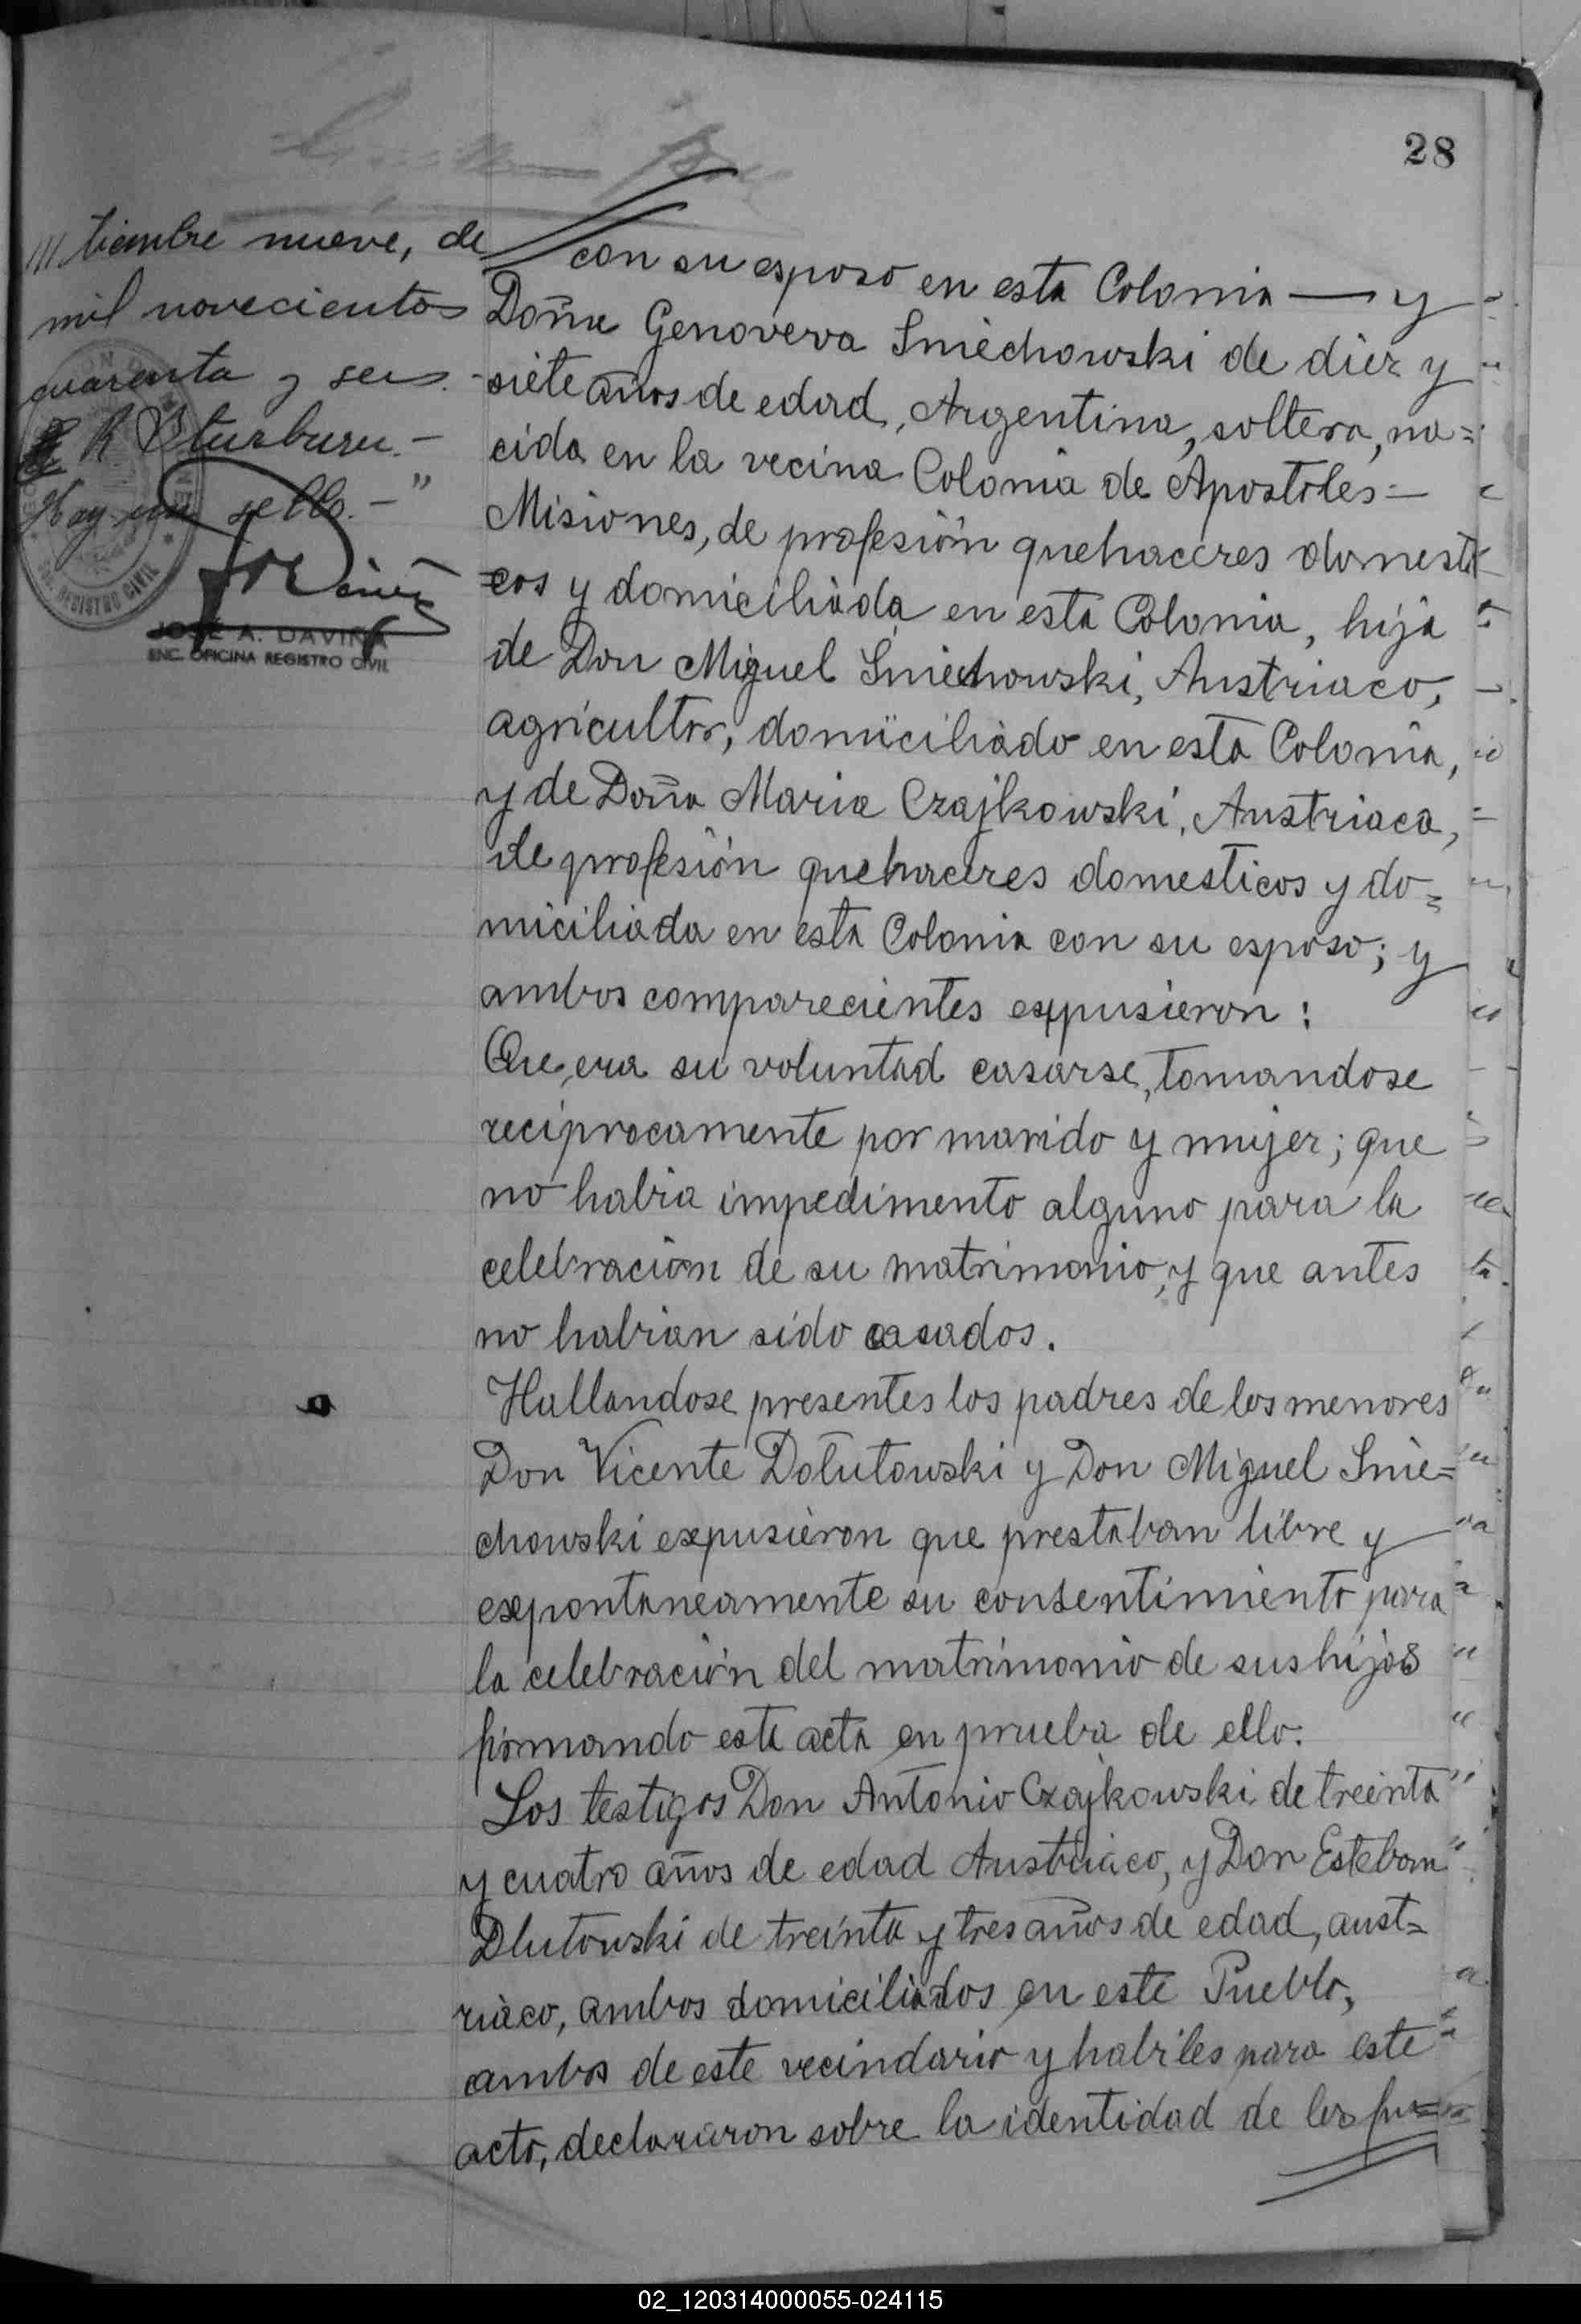 28
tiembre nueve, de
mil novecientos
cuarenta y seis.-
Hay un sello.-"
REGISTRO CIVIL
JOSÉ A. DAVIÑA
ENC. OFICINA REGISTRO CIVIL
con su esposo en esta Colonia — y
Doña Genoveva Smiechowski de diez y
siete años de edad, Argentina, soltera, na=
cida en la vecina Colonia de Apostoles=
Misiones, de profesión quehaceres domesti
=cos y domiciliada en esta Colonia, hija
de Don Miguel Smiechowski, Austriaco,
agricultor, domiciliado en esta Colonia,
y de Doña Maria Czajkowski, Austriaca,
de profesión quehaceres domesticos y do=
miciliada en esta Colonia con su esposo; y
ambos comparecientes expusieron:
Que, era su voluntad casarse, tomandose
reciprocamente por marido y mujer; que
no habia impedimento alguno para la
celebracion de su matrimonio, y que antes
no habian sido casados.
Hallandose presentes los padres de los menores
Don Vicente Dołutowski y Don Miguel Smie=
chowski expusieron que prestaban libre y
expontaneamente su consentimiento para
la celebración del matrimonio de sus hijos
firmando esta acta en prueba de ello.
Los testigos Don Antonio Czajkowski de treinta
y cuatro años de edad Austriaco, y Don Esteban
Dlutowski de treinta y tres años de edad, aust=
riaco, ambos domiciliados en este Pueblo,
ambos de este vecindario y habiles para este
acto, declararon sobre la identidad de los fu=
02_120314000055-024115